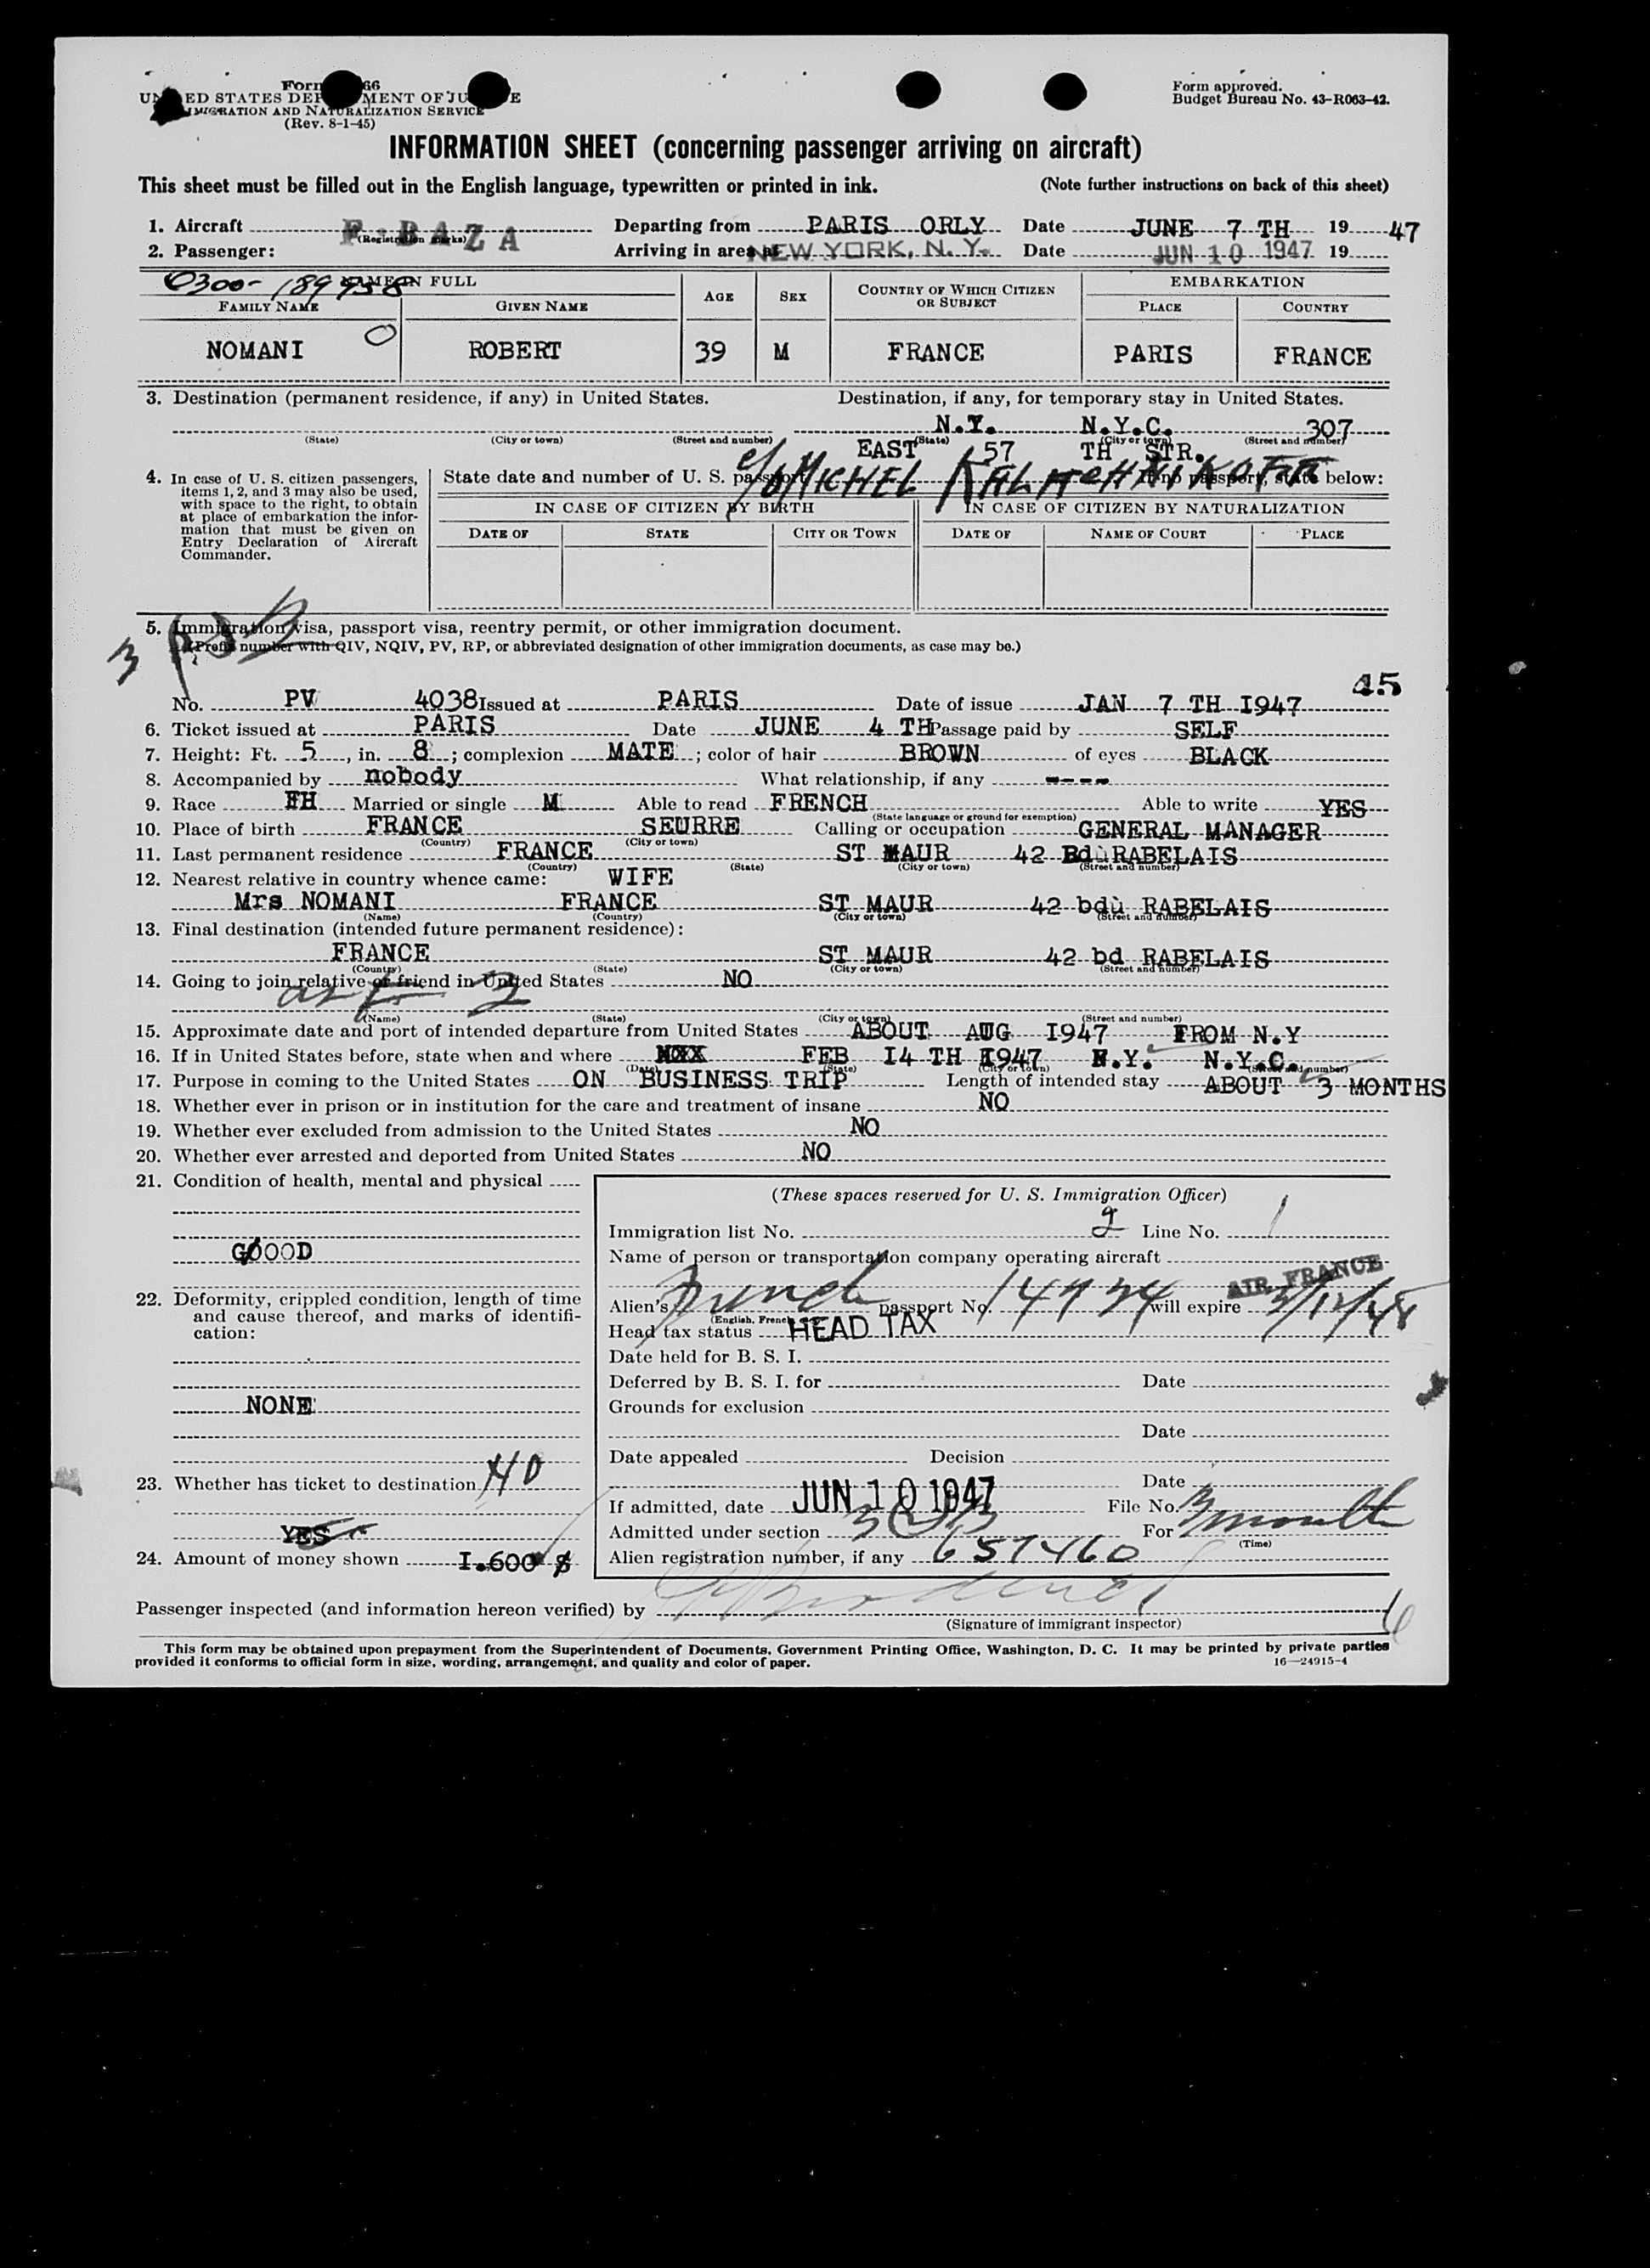 Form 66
UNITED STATES DEPARTMENT OF JUSTICE
IMMIGRATION AND NATURALIZATION SERVICE
(Rev. 8-1-45)
Form approved.
Budget Bureau No. 43-R063-42.
INFORMATION SHEET (concerning passenger arriving on aircraft)
This sheet must be filled out in the English language, typewritten or printed in ink. (Note further instructions on back of this sheet)
1. Aircraft F-BAZA (Registration marks) Departing from PARIS ORLY Date JUNE 7 TH 19 47
2. Passenger: Arriving in area at NEW YORK, N. Y. Date JUN 10 1947 19
0300-189958 NAME IN FULL AGE SEX COUNTRY OF WHICH CITIZEN OR SUBJECT EMBARKATION
FAMILY NAME GIVEN NAME PLACE COUNTRY
NOMANI ROBERT 39 M FRANCE PARIS FRANCE
3. Destination (permanent residence, if any) in United States. Destination, if any, for temporary stay in United States.
N.Y. N.Y.C. 307
(State) (City or town) (Street and number) (State) (City or town) (Street and number)
EAST 57 TH STR.
c/o MICHEL
4. In case of U. S. citizen passengers, items 1, 2, and 3 may also be used, with space to the right, to obtain at place of embarkation the information that must be given on Entry Declaration of Aircraft Commander.
State date and number of U. S. passport If no passport, state below:
IN CASE OF CITIZEN BY BIRTH IN CASE OF CITIZEN BY NATURALIZATION
DATE OF STATE CITY OR TOWN DATE OF NAME OF COURT PLACE
5. Immigration visa, passport visa, reentry permit, or other immigration document.
(Prefix number with QIV, NQIV, PV, RP, or abbreviated designation of other immigration documents, as case may be.)
3
45
No. PV 4038 Issued at PARIS Date of issue JAN 7 TH I947
6. Ticket issued at PARIS Date JUNE 4 TH Passage paid by SELF
7. Height: Ft. 5, in. 8; complexion MATE; color of hair BROWN of eyes BLACK
8. Accompanied by nobody What relationship, if any ----
9. Race FH Married or single M Able to read FRENCH Able to write YES
(State language or ground for exemption)
10. Place of birth FRANCE SEURRE Calling or occupation GENERAL MANAGER
(Country) (City or town)
11. Last permanent residence FRANCE ST MAUR 42 Bdù RABELAIS
(Country) (State) (City or town) (Street and number)
12. Nearest relative in country whence came: WIFE
Mrs NOMANI FRANCE ST MAUR 42 bdù RABELAIS
(Name) (Country) (City or town) (Street and number)
13. Final destination (intended future permanent residence):
FRANCE ST MAUR 42 bd RABELAIS
(Country) (State) (City or town) (Street and number)
14. Going to join relative or friend in United States NO
(Name) (State) (City or town) (Street and number)
15. Approximate date and port of intended departure from United States ABOUT AUG I947 FROM N.Y
16. If in United States before, state when and where FEB I4 TH I947 N.Y. N.Y.C.
(Date) (State) (City or town) (Street and number)
17. Purpose in coming to the United States ON BUSINESS TRIP Length of intended stay ABOUT 3 MONTHS
18. Whether ever in prison or in institution for the care and treatment of insane NO
19. Whether ever excluded from admission to the United States NO
20. Whether ever arrested and deported from United States NO
21. Condition of health, mental and physical
GOOOD
22. Deformity, crippled condition, length of time and cause thereof, and marks of identification:
NONE
23. Whether has ticket to destination NO
YES
24. Amount of money shown I.600 $
(These spaces reserved for U. S. Immigration Officer)
Immigration list No. 2 Line No. 1
Name of person or transportation company operating aircraft
AIR FRANCE
Alien's French passport No. 14934 will expire 3/12/48
(English, French, etc.)
Head tax status HEAD TAX
Date held for B. S. I.
Deferred by B. S. I. for Date
Grounds for exclusion
Date
Date appealed Decision
Date
If admitted, date JUN 10 1947 File No.
Admitted under section 3(2) For 3 month
(Time)
Alien registration number, if any 657460
Passenger inspected (and information hereon verified) by
(Signature of immigrant inspector)
This form may be obtained upon prepayment from the Superintendent of Documents, Government Printing Office, Washington, D. C. It may be printed by private parties
provided it conforms to official form in size, wording, arrangement, and quality and color of paper. 16—24915-4